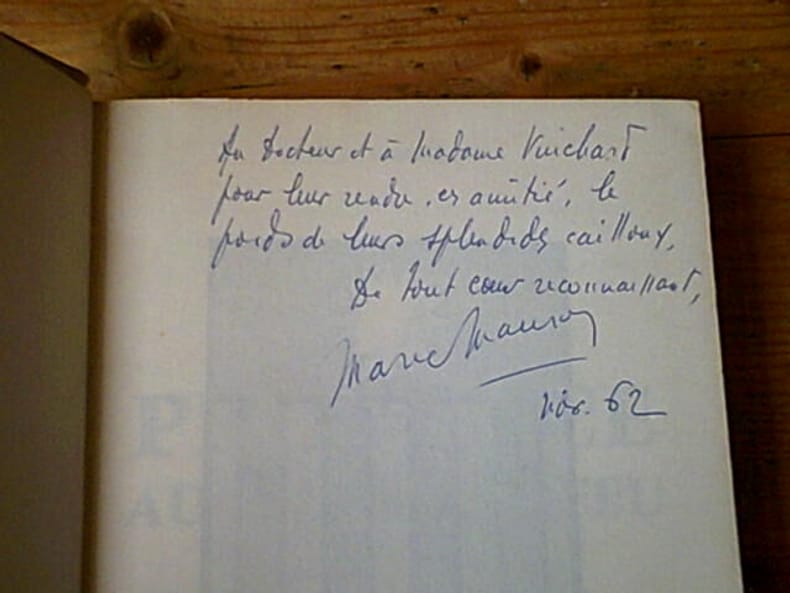 Au Docteur et à Madame Vuichard
pour leur rendre, en amitié, le
poids de leurs splendides cailloux,
De tout cœur reconnaissant,
Marc
nov. 62